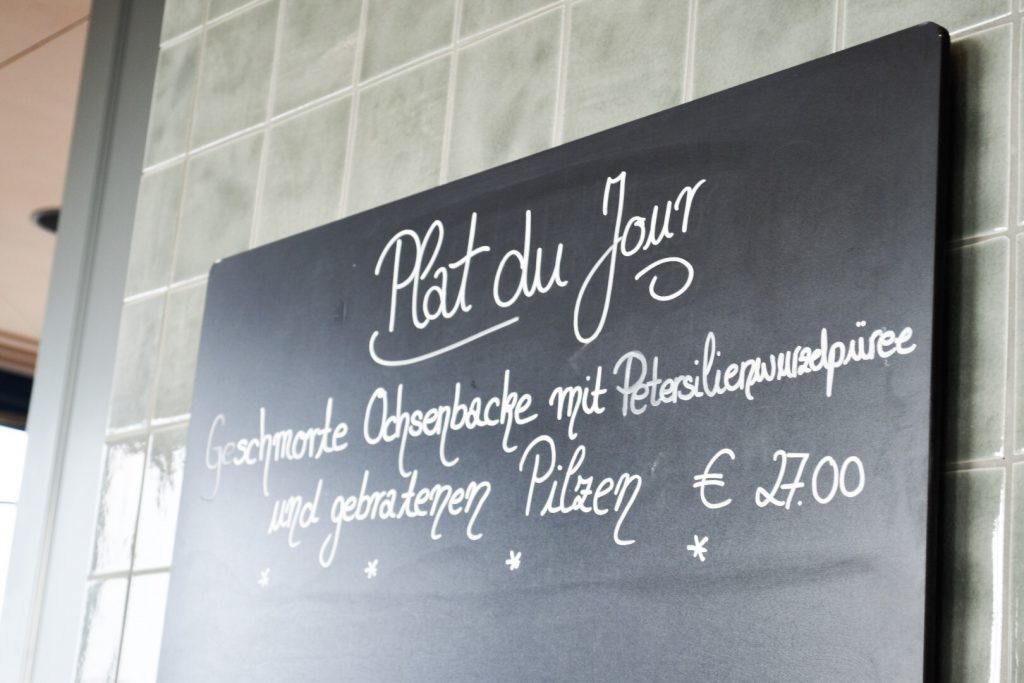 Plat du Jour
Geschmorte Ochsenbacke mit Petersilienwurzelpüree
und gebratenen Pilzen € 27.00
* * * *